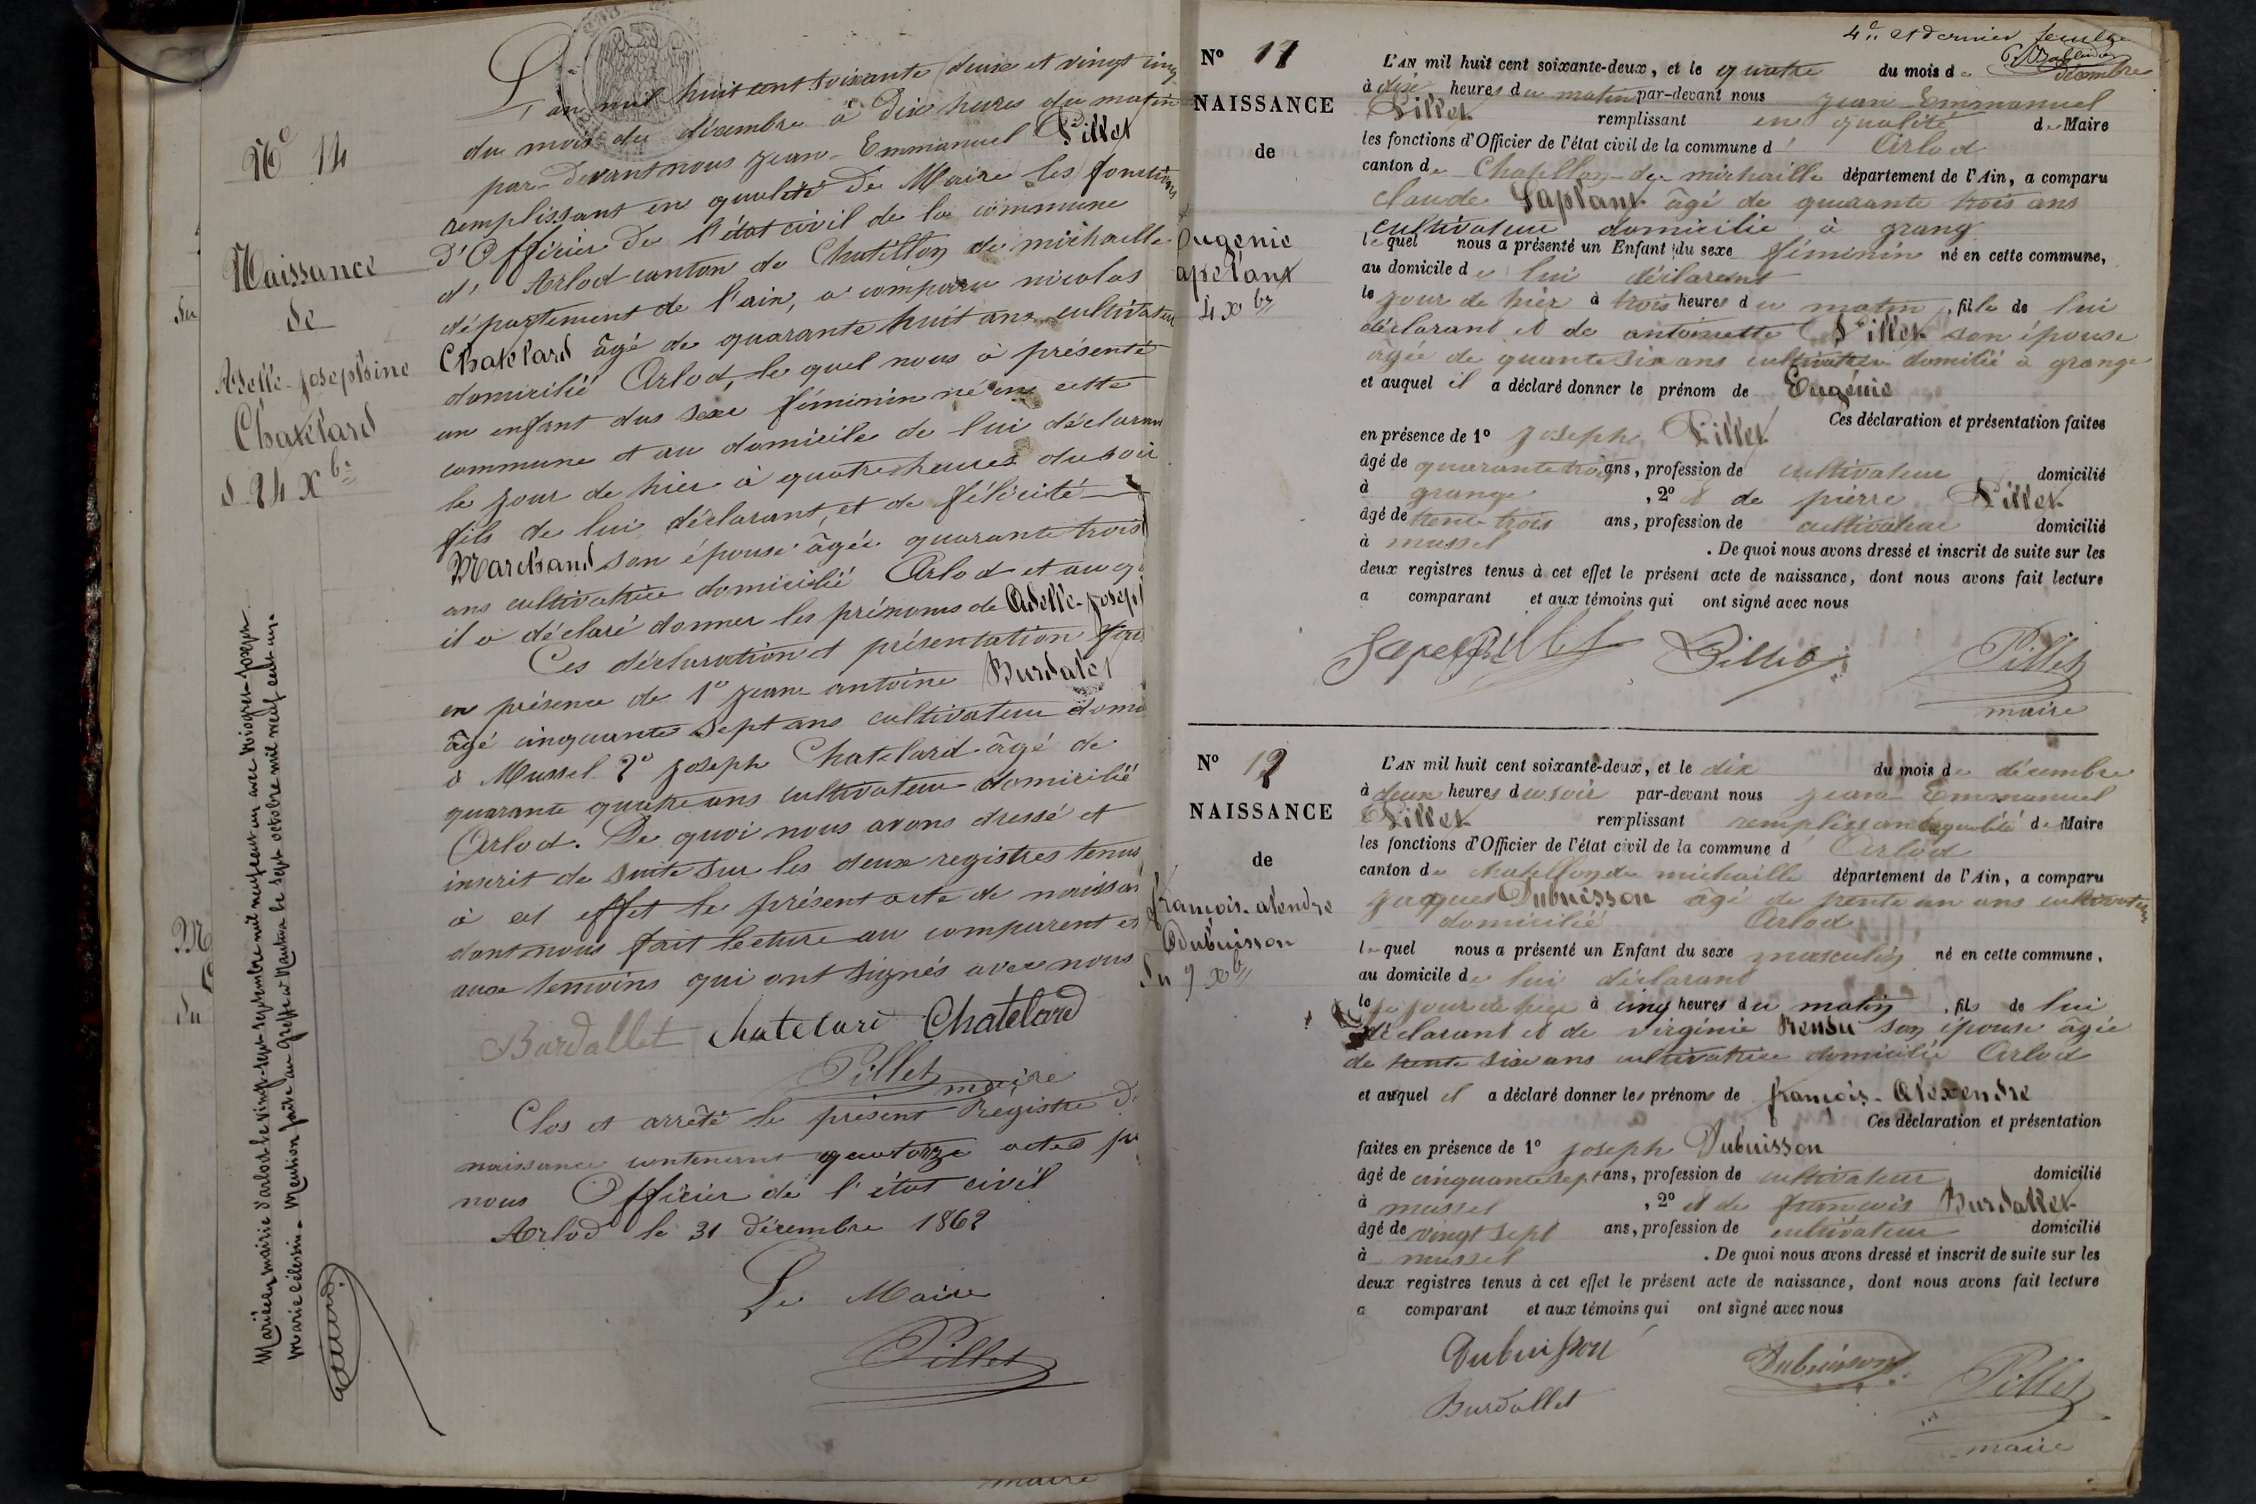 N° 14
Naissance
de
Adelle-Josephine
Chatelard
d 24 Xbre
Mariée en mairie d'arlod le vingt-sept septembre mil neuf cent un avec Joseph
Marie Célestin. Mention faite au greffe à Nantua le sept octobre mil neuf cent un.
L'an mil huit cent soixante deux et vingt cinq
du mois du décembre à Dix heures du matin
par-devant nous jean-Emmanuel Pillet
remplissant en qualité De Maire les fonctions
d'Officier De l'état civil de la commune
d' Arlod canton de Chatillon de michaille
département de l'ain, a comparu nicolas
Chatelard âgé de quarante huit ans cultivateur
domicilié Arlod, le quel nous à présenté
un enfant dus sexe féminin né en cette
commune et au domicile de lui déclarant
le jour de hier à quatre heures du soir
fils de lui déclarant, et de félicité
Marchand son épouse âgée quarante trois
ans cultivatrice domicilié Arlod et au q
il a déclaré donner les prénoms de Adelle-Joseph
Ces déclaration et présentation fai
en présence de 1° jean antoine Burdalet
âgé cinquante sept ans cultivateur domi
à Mussel 2° joseph Chatelard âgé de
quarante quatre ans cultivateur domicilié
Arlod. De quoi nous avons dressé et
inscrit de suite sur les deux registres tenus
à cet effet le présent acte de naissan
dont nous fait lecture au comparent et
aux temoins qui ont signés avec nous
Burdallet Chatelard Chatelard
Pillet maire
Clos et arrêté le présent Registre d
naissance contenant quatorze actes p
nous Officier de l'état civil
Arlod le 31 décembre 1862
Le Maire
Pillet
maire
4e et dernier feuille
N° 11
NAISSANCE
de
Eugenie
apelant
4 Xbre
L'AN mil huit cent soixante-deux, et le quatre du mois de décembre
à dix heures du matin par-devant nous jean-Emmanuel
Pillet remplissant en qualité de Maire
les fonctions d'Officier de l'état civil de la commune d' Arlod
canton de Chatillon-de-michaille département de l'Ain, a comparu
claude Laplant âgé de quarante trois ans
cultivateur domicilié à grang
lequel nous a présenté un Enfant du sexe féminin né en cette commune,
au domicile de lui déclarant
le jour de hier à trois heures du matin, fille de lui
déclarant et de antoinette Pillet son épouse
âgée de quante six ans cultivatrice domilié à grange
et auquel il a déclaré donner le prénom de Eugénie
Ces déclaration et présentation faites
en présence de 1° Joseph Pillet
âgé de quarante trois ans, profession de cultivateur domicilié
à grange, 2° et de pierre Pillet
âgé de trente-trois ans, profession de cultivateur domicilié
à mussel. De quoi nous avons dressé et inscrit de suite sur les
deux registres tenus à cet effet le présent acte de naissance, dont nous avons fait lecture
a comparant et aux témoins qui ont signé avec nous
Pillet Pillet Pillet
maire
N° 12
NAISSANCE
de
françois-alendre
Dubuisson
du 9 Xbre
L'AN mil huit cent soixante-deux, et le dix du mois de décembre
à deux heures du soir par-devant nous jean Emmanuel
Pillet remplissant remplissant en qualité de Maire
les fonctions d'Officier de l'état civil de la commune d' Arlod
canton de chatillon de michaille département de l'Ain, a comparu
jacques Dubuisson âgé de trente un ans cultivateur
domicilié Arlod
lequel nous a présenté un Enfant du sexe masculin né en cette commune,
au domicile de lui déclarant
le jour de hier à cinq heures du matin, fils de lui
déclarant et de virginie Rendu son épouse âgée
de trente six ans cultivatrice domicilié Arlod
et auquel il a déclaré donner les prénoms de françois-Alexendre
Ces déclaration et présentation
faites en présence de 1° joseph Dubuisson
âgé de cinquante sept ans, profession de cultivateur domicilié
à mussel, 2° et de francois Burdallet
âgé de vingt sept ans, profession de cultivateur domicilié
à mussel. De quoi nous avons dressé et inscrit de suite sur les
deux registres tenus à cet effet le présent acte de naissance, dont nous avons fait lecture
a comparant et aux témoins qui ont signé avec nous
Dubuisson Dubuisson Pillet
Burdallet
maire